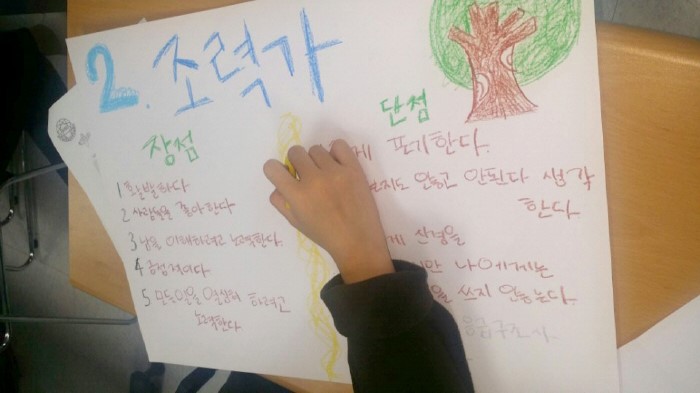 2. 조력가
장점
1 활발하다
2 사람들을 좋아한다
3 남을 이해하려고 노력한다.
4 긍정적이다
5 모든일을 열심히 하려고
노력한다
단점
게 포기한다.
보지도 않고 안된다 생각
한다
게 신경을
나에게는
을 쓰지 않는다.
응급구조사